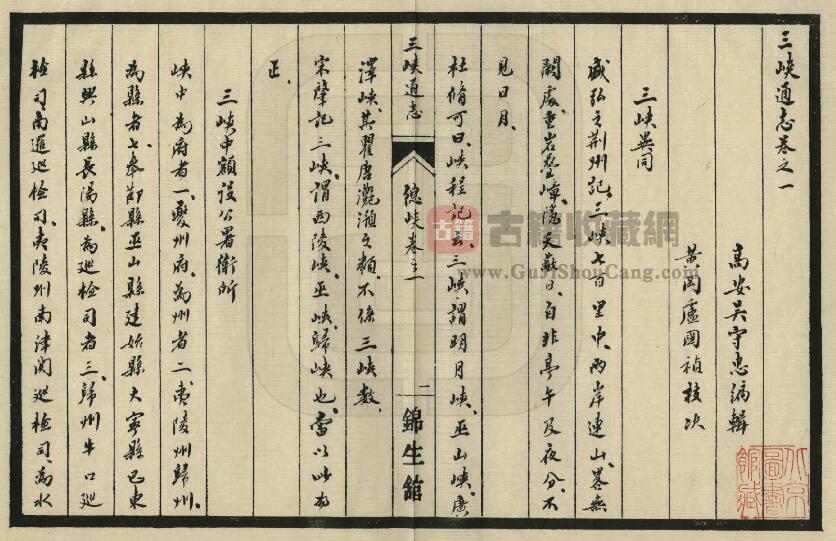 三峽通志卷之一
高安吳守忠編輯
黃岡盧國禎校次
三峽異同
盛弘之荆州記三峽七百里中兩岸連山畧無
闕處重岩疊嶂隱天蔽日自非亭午及夜分不
見日月
杜脩可曰峽程記云三峽謂明月峽巫山峽廣
三峽通志 總峽卷之一 二 錦生館
澤峽其瞿唐灔澦之類不係三峽數
宋肇記三峽謂西陵峽巫峽歸峽也當以此為
正
三峽中額設公署衛所
峽中為府者一夔州府為州者二夷陵州歸州
為縣者七奉節縣巫山縣建始縣大寧縣巴東
縣興山縣長陽縣為巡檢司者三歸州牛口巡
檢司南邏巡檢司夷陵州南津関巡檢司為水
古籍
古籍收藏網
www.GuJiShouCang.com
北京圖書館藏